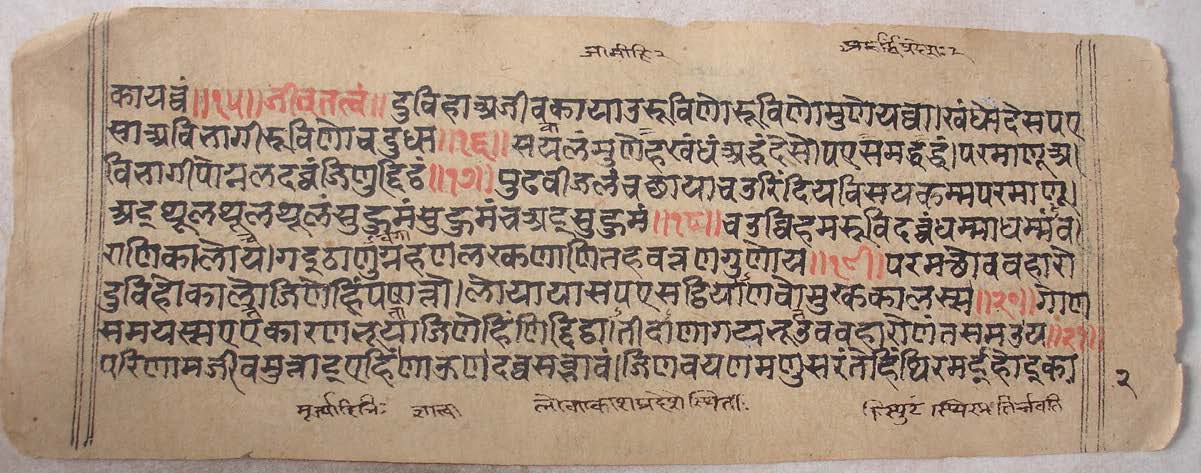 कायव्वं ॥१५॥ जीवतत्वं ॥ दुविहा अजीवकाया उ रूविणो रूविणो मुणेयव्वा । खंधा देस पए
सा अविभागी रूविणो च दुध्धा ॥१६॥ सयलं मुणेह खंधं अद्धं देसो पएसमद्धद्धं । परमाणू अ
विभागी पोग्गलदव्वं जिणुद्दिट्ठं ॥१७॥ पुढवी जलं च छाया चउरिंदियविसय कम्म परमाणू ।
अइथूलथूलथूलं सुहुमं सुहुमं च अइसुहुमं ॥१८॥ चउविहमरूविदव्वं धम्माधम्मंव
राणि कालो य । गइठाणुग्गहणलक्कणाणि तह वत्तणगुणो य ॥१९॥ परमत्थो ववहारो
दुविहो कालो जिणेहिं पण्णत्तो । लोयायासपएसट्ठियाणवो मुक्ककालस्स ॥२०॥ गोण
समयस्स एए कारणभूया जिणेहिं णिद्दिट्ठा । तीदाणागदभूउ ववहारो णंतसमउ य ॥२१॥
परिणामजीवमुत्ताइएहिं णाऊण दव्वसब्भावं । जिणवयणमणुसरंतेहिं थिरमई होइ का
२
लोकाकाशप्रदेशस्थिताः